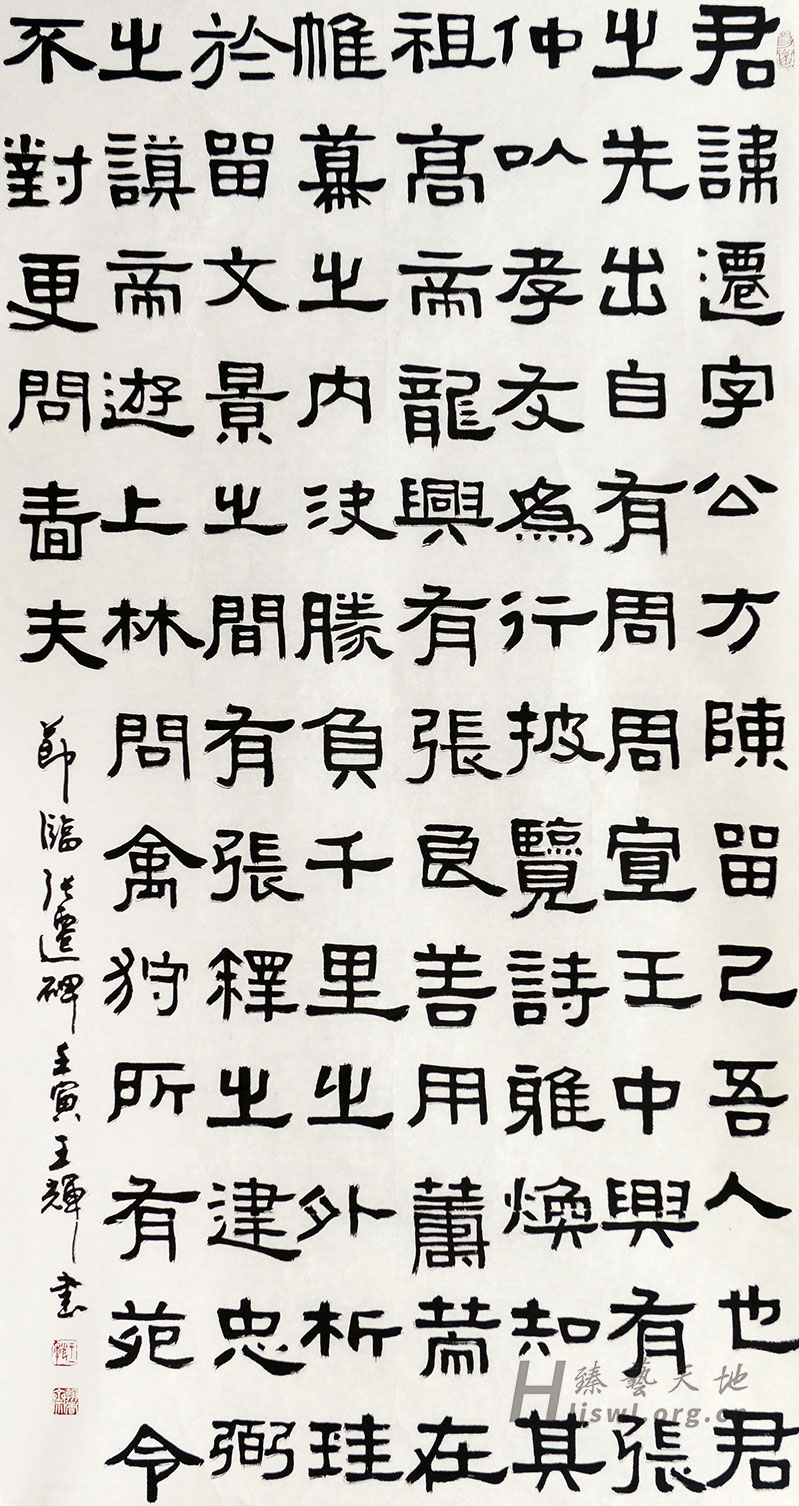 君諱遷字公方陳留己吾人也君
之先出自有周周宣王中興有張
仲以孝友為行披覽詩雅煥知其
祖高帝龍興有張良善用籌策在
帷幕之內決勝負千里之外析珪
於留文景之間有張釋之建忠弼
之謨帝遊上林問禽狩所有苑令
不對更問嗇夫
節臨張遷碑壬寅王輝書
臻藝天地